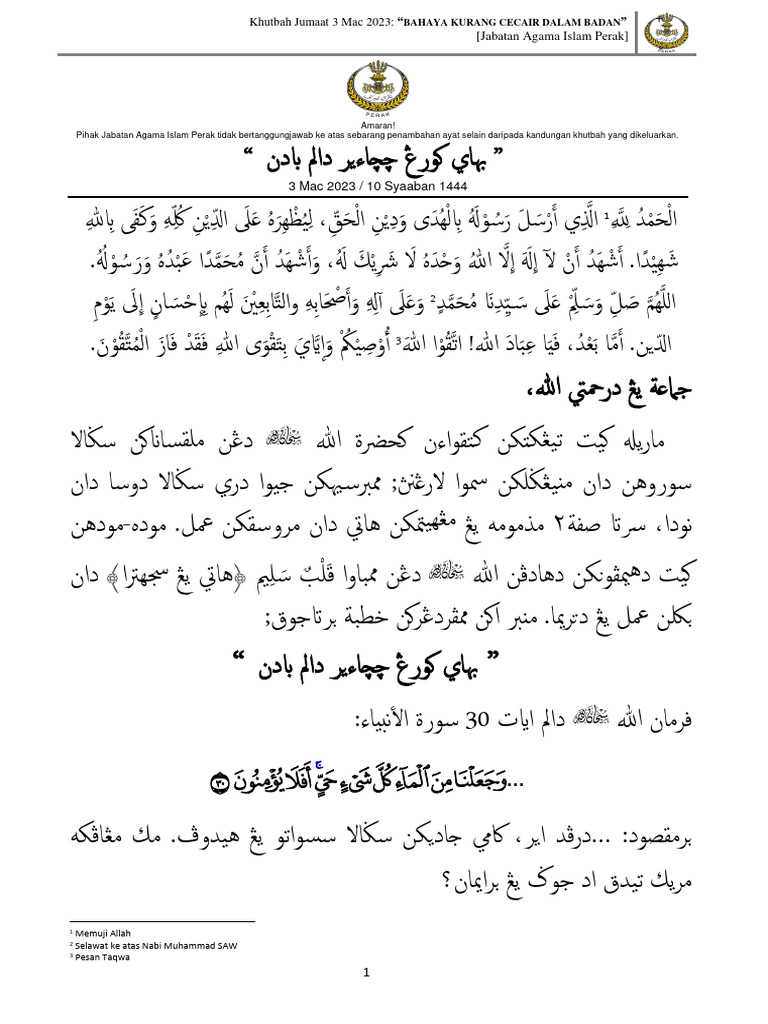 Khutbah Jumaat 3 Mac 2023: “BAHAYA KURANG CECAIR DALAM BADAN”
[Jabatan Agama Islam Perak]
PERAK
Amaran!
Pihak Jabatan Agama Islam Perak tidak bertanggungjawab ke atas sebarang penambahan ayat selain daripada kandungan khutbah yang dikeluarkan.
” بهاي كورڠ چچاءير دالم بادن “
3 Mac 2023 / 10 Syaaban 1444
الْحَمْدُ لِلَّهِ¹ الَّذِي أَرْسَلَ رَسُوْلَهُ بِالْهُدَى وَدِيْنِ الْحَقِّ، لِيُظْهِرَهُ عَلَى الدِّيْنِ كُلِّهِ وَكَفَى بِاللهِ
شَهِيْدًا. أَشْهَدُ أَنْ لَآ إِلَهَ إِلَّا اللهُ وَحْدَهُ لَا شَرِيْكَ لَهُ، وَأَشْهَدُ أَنَّ مُحَمَّدًا عَبْدُهُ وَرَسُوْلُهُ.
اللَّهُمَّ صَلِّ وَسَلِّمْ عَلَى سَيِّدِنَا مُحَمَّدٍ² وَعَلَى آلِهِ وَأَصْحَابِهِ والتَّابِعِيْنَ لَهُم بِإِحْسَانٍ إِلَى يَوْمِ
الدِّين. أَمَّا بَعْدُ، فَيَا عِبَادَ الله! اتَّقُوْا اللهَ³ أُوْصِيْكُمْ وَإِيَّايَ بِتَقْوَى اللهِ فَقَدْ فَازَ الْمُتَّقُوْنَ.
جماعة يڠ درحمتي الله،
ماريله كيت تيڠكتكن كتقواءن كحضرة الله ﷻ دڠن ملقساناكن سݢالا
سوروهن دان منيڠݢلكن سموا لارڠنڽ; ممبرسيهكن جيوا دري سݢالا دوسا دان
نودا، سرتا صفة٢ مذمومه يڠ مڠهيتمكن هاتي دان مروسقكن عمل. موده-مودهن
كيت دهيمڤونكن دهادڤن الله ﷻ دڠن ممباوا قَلْبٌ سَلِيم ﴿هاتي يڠ سجهترا﴾ دان
بكلن عمل يڠ دتريما. منبر اكن ممڤردڠركن خطبة برتاجوق;
” بهاي كورڠ چچاءير دالم بادن “
فرمان الله ﷻ دالم ايات 30 سورة الأنبياء:
...وَجَعَلْنَا مِنَ ٱلْمَآءِ كُلَّ شَىْءٍ حَىٍّ ۖ أَفَلَا يُؤْمِنُونَ ۝٣٠
برمقصود: ...درڤد اير، كامي جاديكن سݢالا سسواتو يڠ هيدوڤ. مك مڠاڤكه
مريك تيدق اد جوݢ يڠ برايمان؟
¹ Memuji Allah
² Selawat ke atas Nabi Muhammad SAW
³ Pesan Taqwa
1